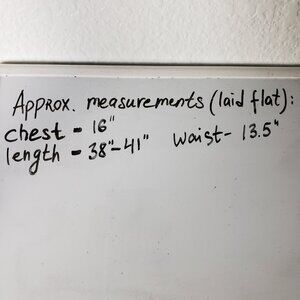 Approx. measurements (laid flat):
chest - 16" waist - 13.5"
length - 38"-41"